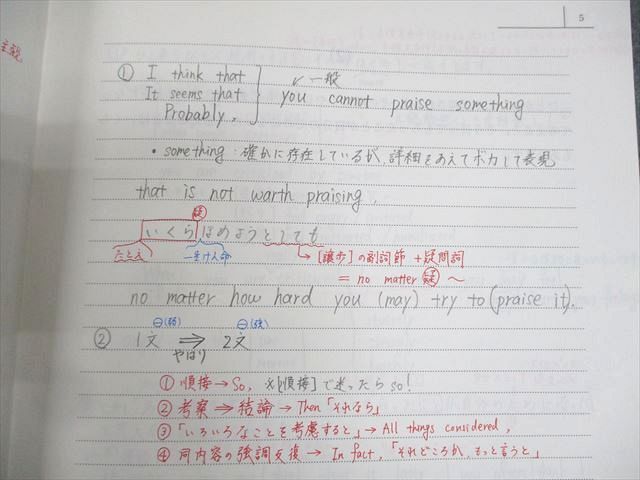 5
主観
① I think that
It seems that
Probably,
↙一般
you cannot praise something
・something：確かに存在しているが、詳細をあえてボカして表現
that is not worth praising,
疑
いくらほめようとしても
たとえ
一生けん命
→[譲歩]の副詞節＋疑問詞
= no matter 疑 ～
no matter how hard you (may) try to (praise it).
② 1文 ⇒ 2文
⊖(弱)
⊖(強)
やはり
① 順接→So, ※[順接]で迷ったらso!
② 考察⇒結論→Then「それなら」
③「いろいろなことを考慮すると」→All things considered,
④ 同内容の強調反復→In fact,「それどころか、もっと言うと」